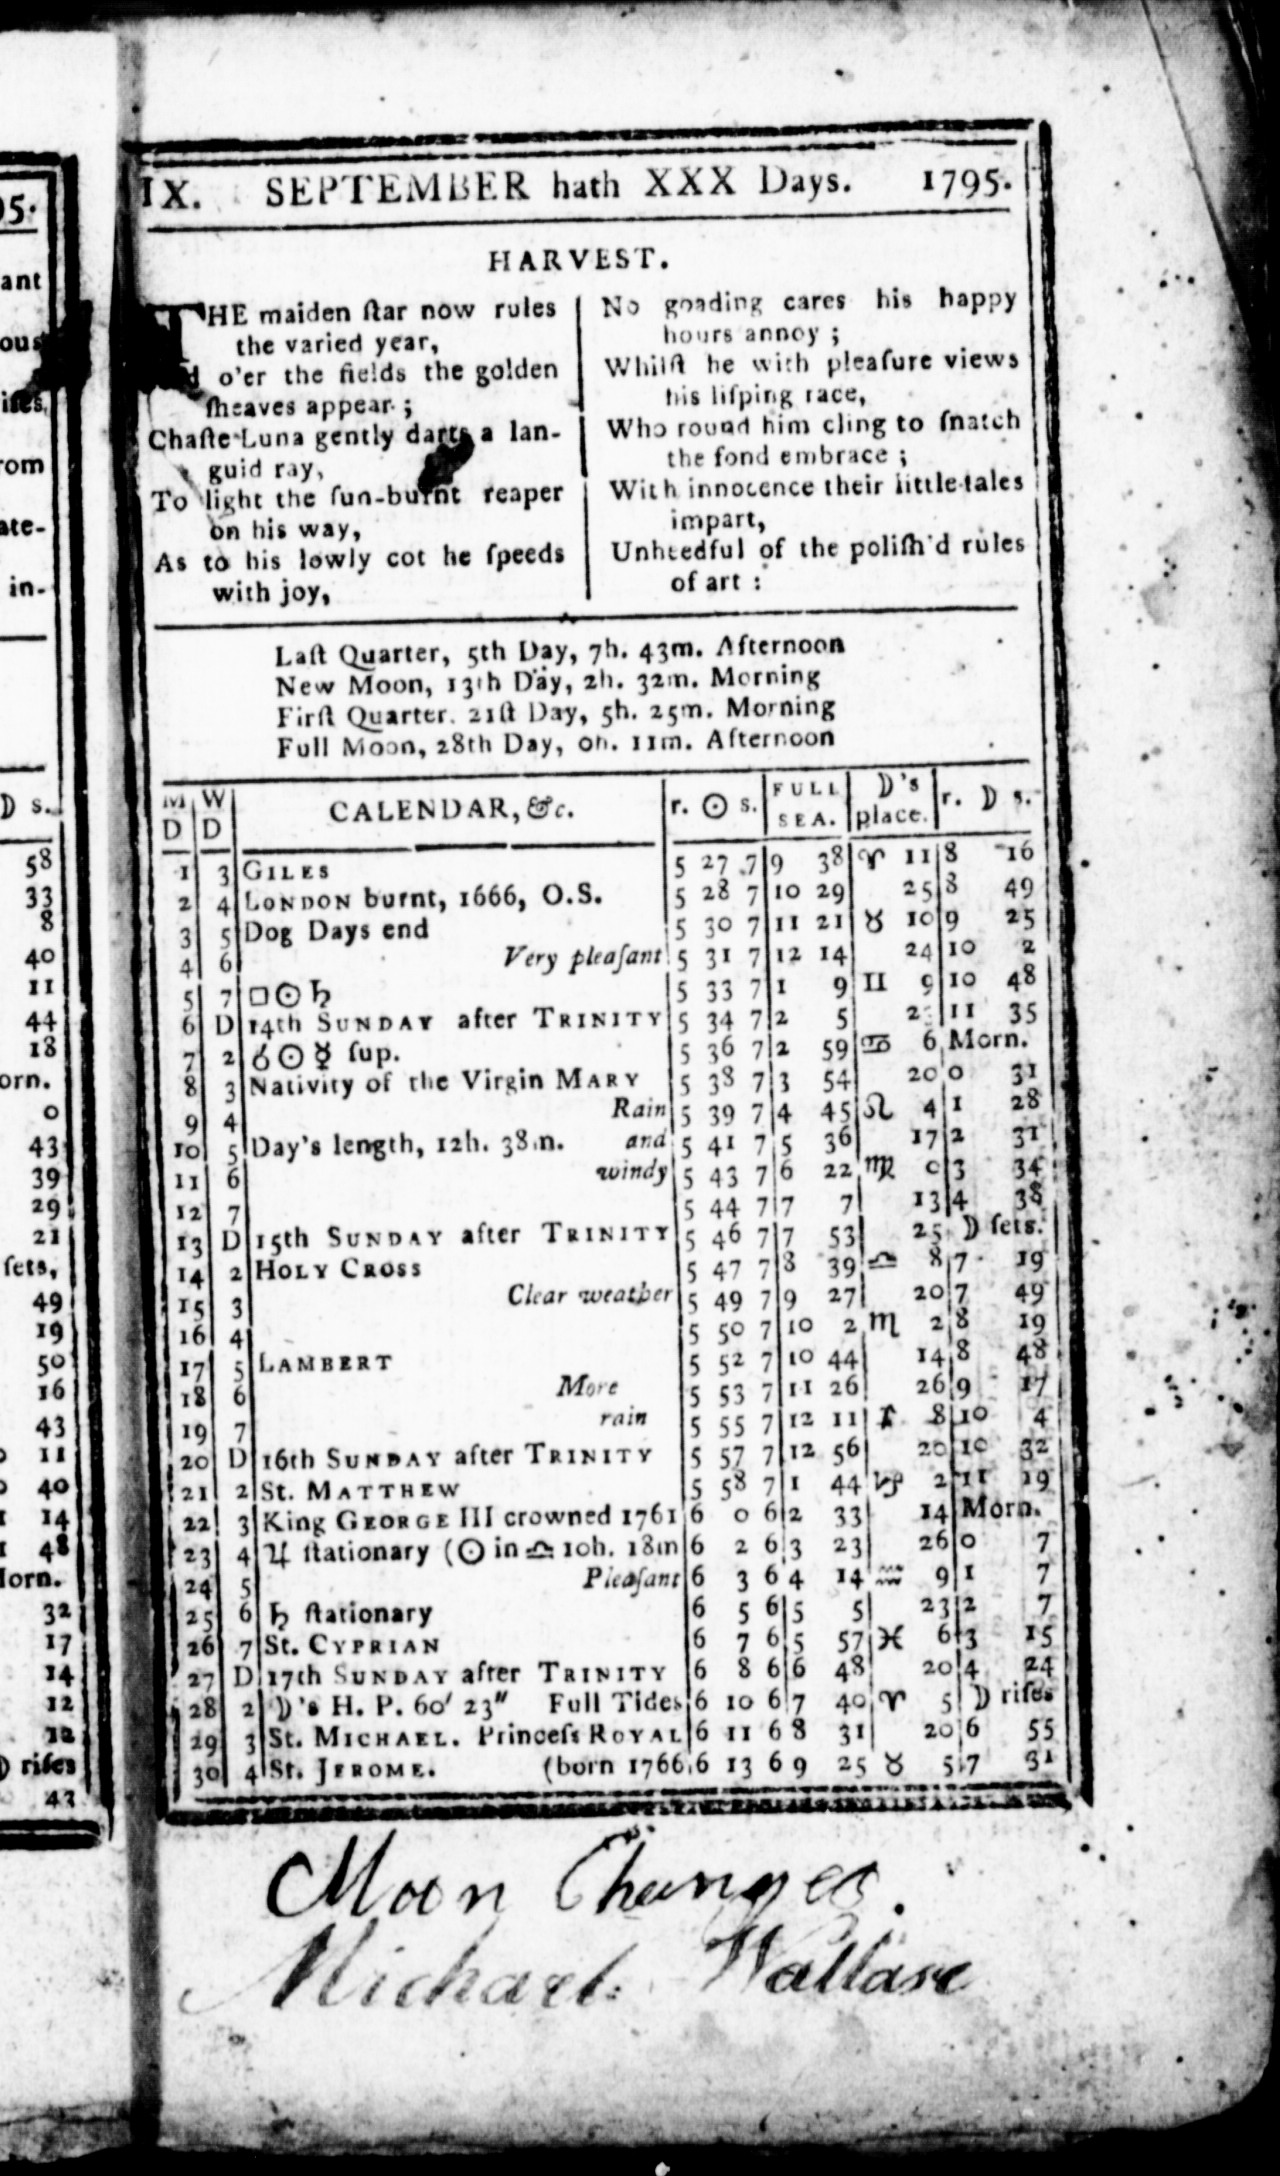 IX. SEPTEMBER hath XXX Days. 1795.
HARVEST.
THE maiden ſtar now rules
the varied year,
o'er the fields the golden
ſheaves appear ;
Chaſte Luna gently darts a lan-
guid ray,
To light the ſun-burnt reaper
on his way,
As to his lowly cot he ſpeeds
with joy,
No goading cares his happy
hours annoy ;
Whilſt he with pleaſure views
his liſping race,
Who round him cling to ſnatch
the fond embrace ;
With innocence their little tales
impart,
Unheedful of the poliſh'd rules
of art :
Laſt Quarter, 5th Day, 7h. 43m. Afternoon
New Moon, 13th Day, 2h. 32m. Morning
Firſt Quarter. 21ſt Day, 5h. 25m. Morning
Full Moon, 28th Day, 0h. 11m. Afternoon
M D | W D | CALENDAR, &c. | r. ☉ s. | FULL SEA. | ☽'s place. | r. ☽ s.
1 3 GILES 5 27 7 9 38 ♈ 11 8 16
2 4 LONDON burnt, 1666, O.S. 5 28 7 10 29 25 8 49
3 5 Dog Days end 5 30 7 11 21 ♉ 10 9 25
4 6 Very pleaſant 5 31 7 12 14 24 10 2
5 7 □ ☉ ♄ 5 33 7 1 9 ♊ 9 10 48
6 D 14th SUNDAY after TRINITY 5 34 7 2 5 11 35
7 2 ☌ ☉ ☿ ſup. 5 36 7 2 59 ♋ 6 Morn.
8 3 Nativity of the Virgin MARY 5 38 7 3 54 20 0 31
9 4 Rain 5 39 7 4 45 ♌ 4 1 28
10 5 Day's length, 12h. 38m. and 5 41 7 5 36 17 2 31
11 6 windy 5 43 7 6 22 ♍ 0 3 34
12 7 5 44 7 7 7 13 4 38
13 D 15th SUNDAY after TRINITY 5 46 7 7 53 25 ☽ ſets.
14 2 HOLY CROSS 5 47 7 8 39 ♎ 8 7 19
15 3 Clear weather 5 49 7 9 27 20 7 49
16 4 5 50 7 10 2 ♏ 2 8 19
17 5 LAMBERT 5 52 7 10 44 14 8 48
18 6 More 5 53 7 11 26 26 9 17
19 7 rain 5 55 7 12 11 ♐ 8 10 4
20 D 16th SUNDAY after TRINITY 5 57 7 12 56 20 10 32
21 2 St. MATTHEW 5 58 7 1 44 ♑ 2 11 19
22 3 King GEORGE III crowned 1761 6 0 6 2 33 14 Morn.
23 4 ♃ ſtationary (☉ in ♎ 10h. 18m 6 2 6 3 23 26 0 7
24 5 Pleaſant 6 3 6 4 14 ♒ 9 1 7
25 6 ♄ ſtationary 6 5 6 5 5 23 2 7
26 7 St. CYPRIAN 6 7 6 5 57 ♓ 6 3 15
27 D 17th SUNDAY after TRINITY 6 8 6 6 48 20 4 24
28 2 ☽'s H. P. 60' 23" Full Tides 6 10 6 7 40 ♈ 5 ☽ riſes
29 3 St. MICHAEL. Princeſs ROYAL 6 11 6 8 31 20 6 55
30 4 St. JEROME. (born 1766 6 13 6 9 25 ♉ 5 7 31
Moon Changes.
Michael Wallace